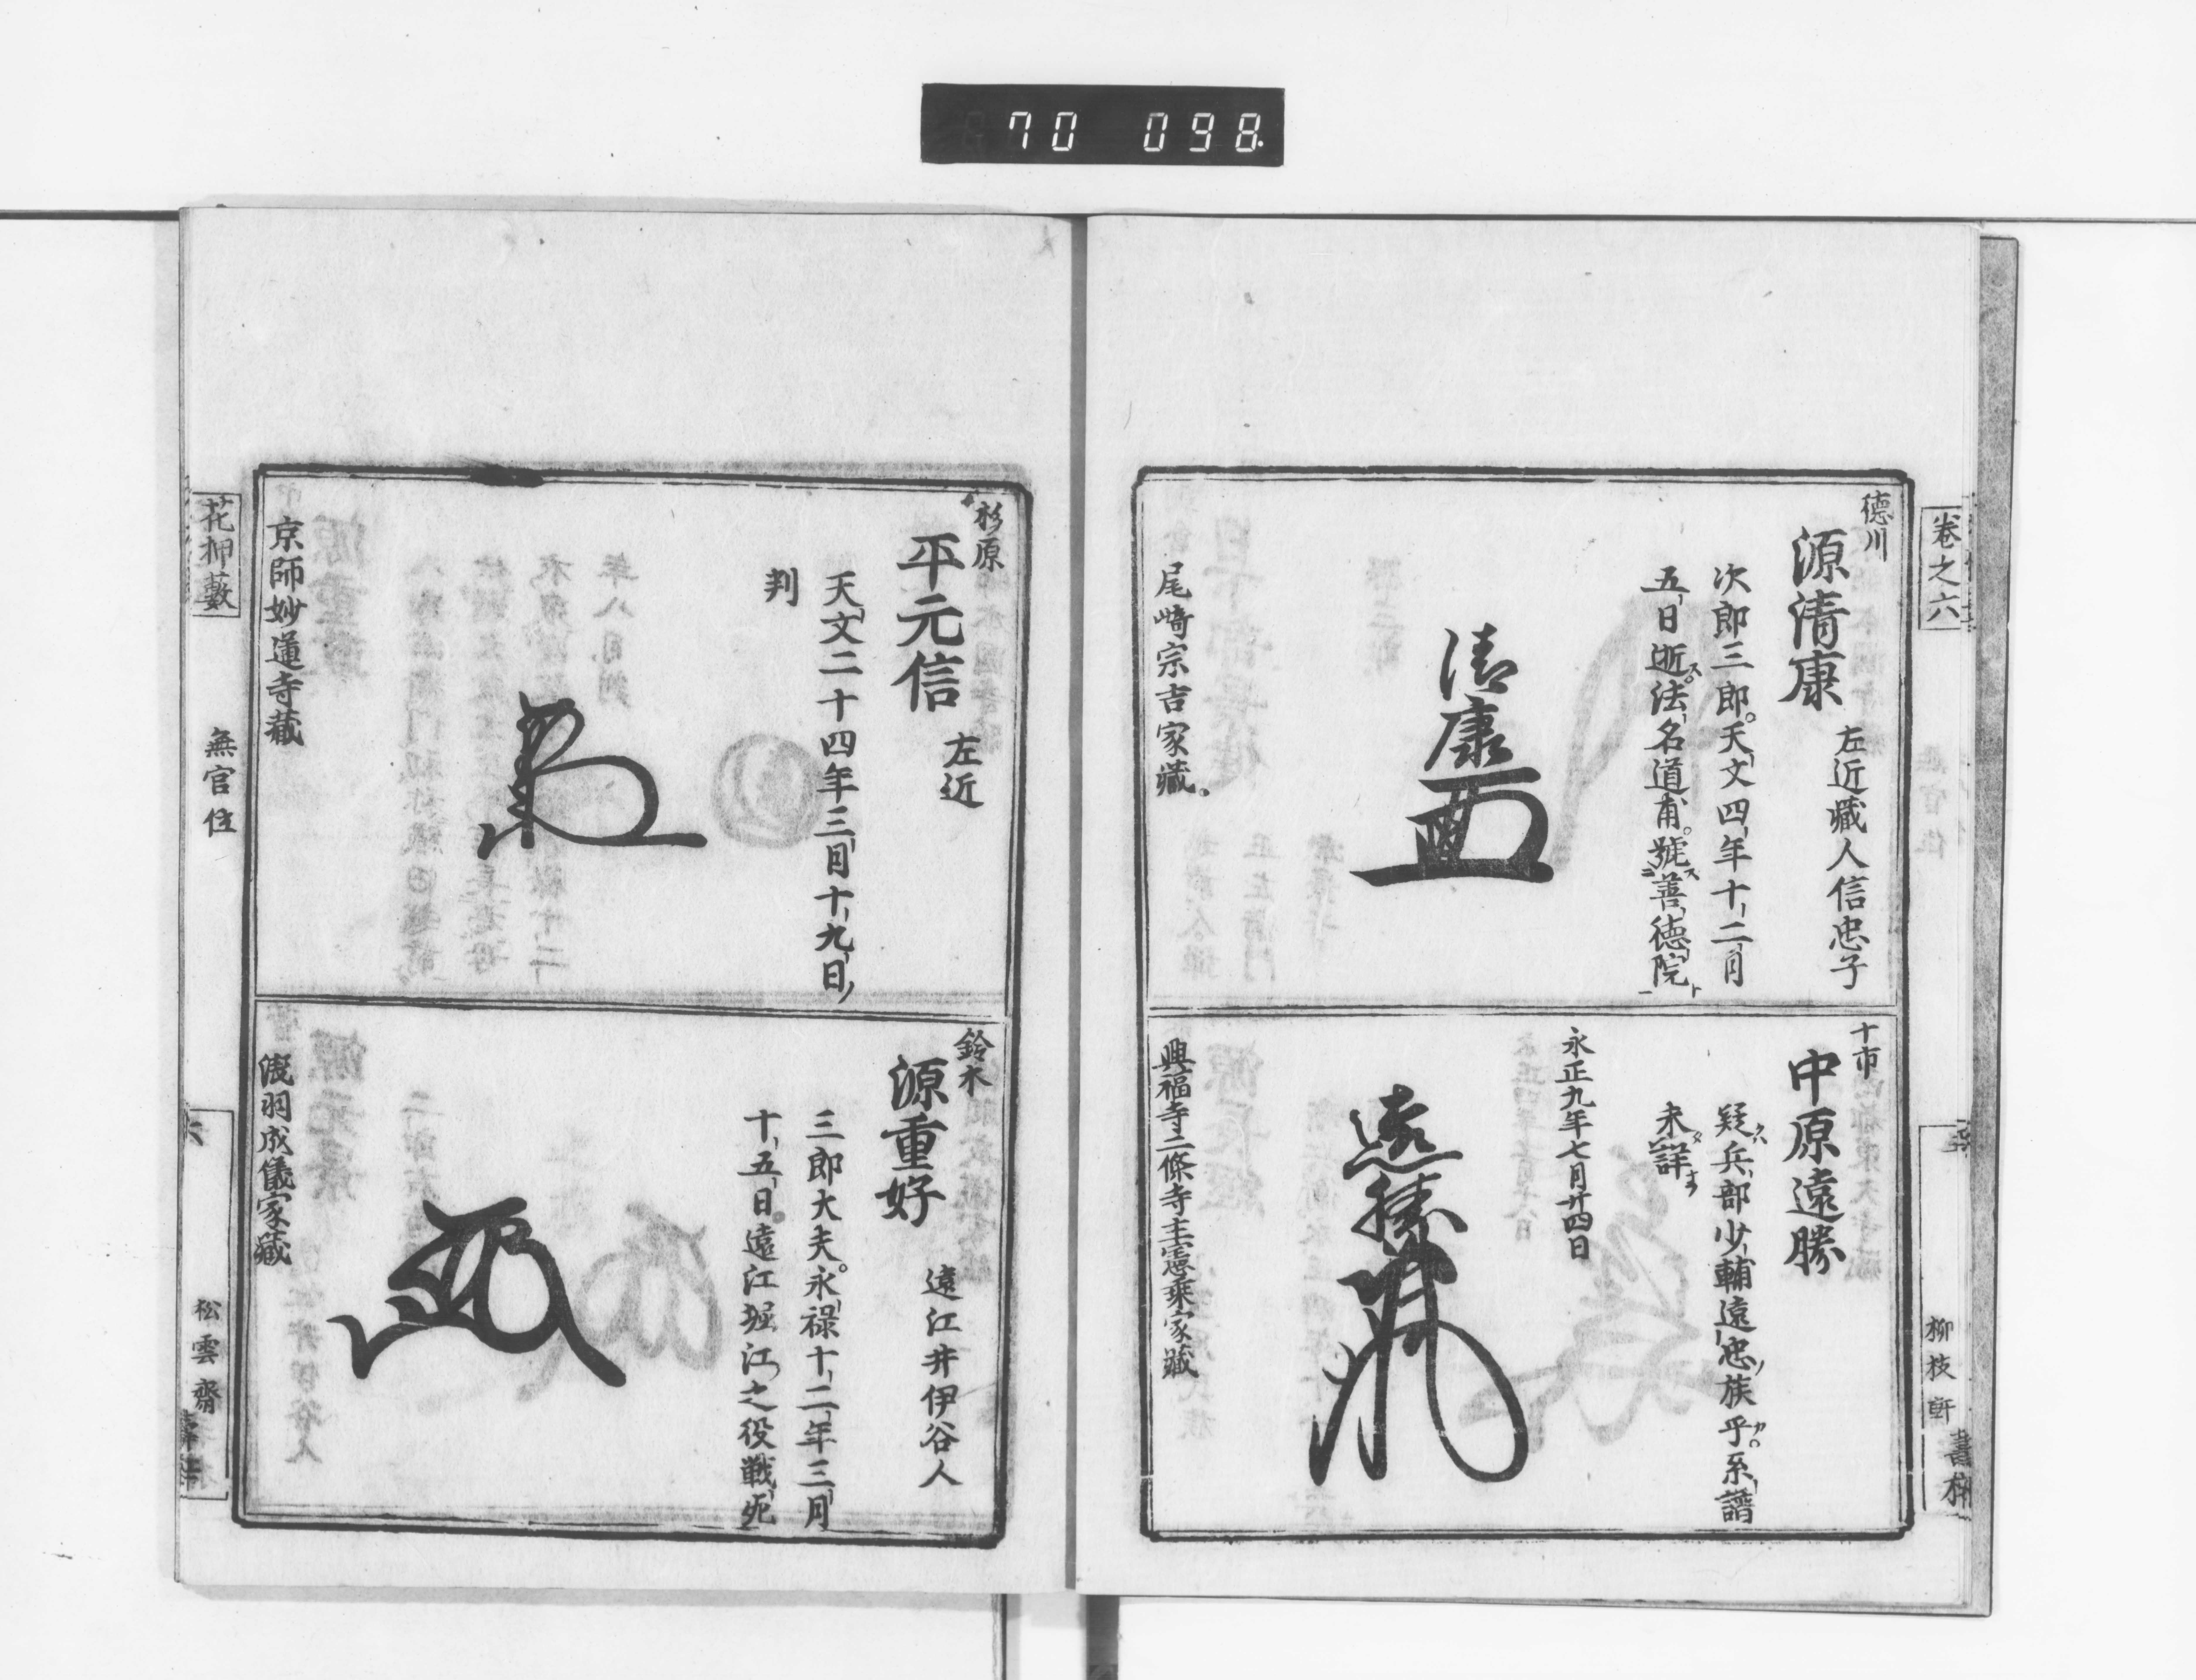 70 098.
卷之六
柳枝軒
德川
源清康
左近藏人信忠子
次郎三郎。天文四年十二月
五日逝ス。法名道甫。號ス善德院ト
清康
尾﨑宗吉家藏。
十市
中原遠勝
疑ハ兵部少輔遠忠ノ族乎カ。系譜
未タ詳ナラ
永正九年七月廿四日
遠勝
興福寺二條寺主憲乘家藏
杉原
平元信
左近
天文二十四年三月十九日ノ
判
京師妙蓮寺藏
鈴木
源重好
遠江井伊谷人
三郎大夫。永禄十二年三月
十五日。遠江堀江之役戰死
渡羽成儀家藏
花押藪
無官位
六
松雲齋